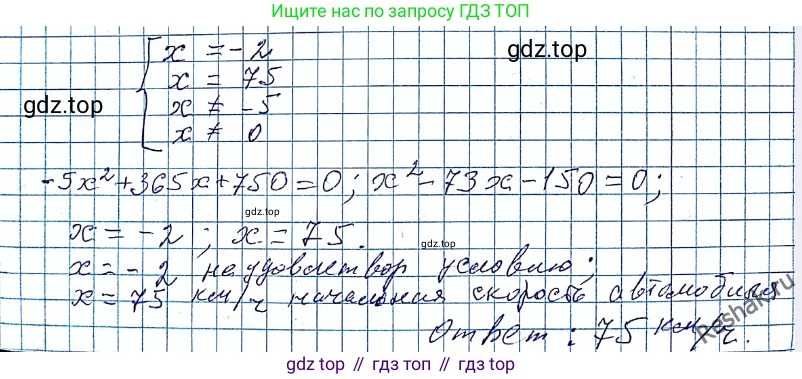 Ищите нас по запросу ГДЗ ТОП
x = -2
gdz.top
x = 75
gdz.top
x ≠ -5
x ≠ 0
-5x²+365x+750=0; x²-73x-150=0;
gdz.top
x = -2; x = 75.
gdz.top
x = -2 не удовлетвор условию;
x = 75 км/ч начальная скорость автомобиля
Ответ: 75 км/ч.
reshak.ru
gdz.top // гдз топ // gdz.top